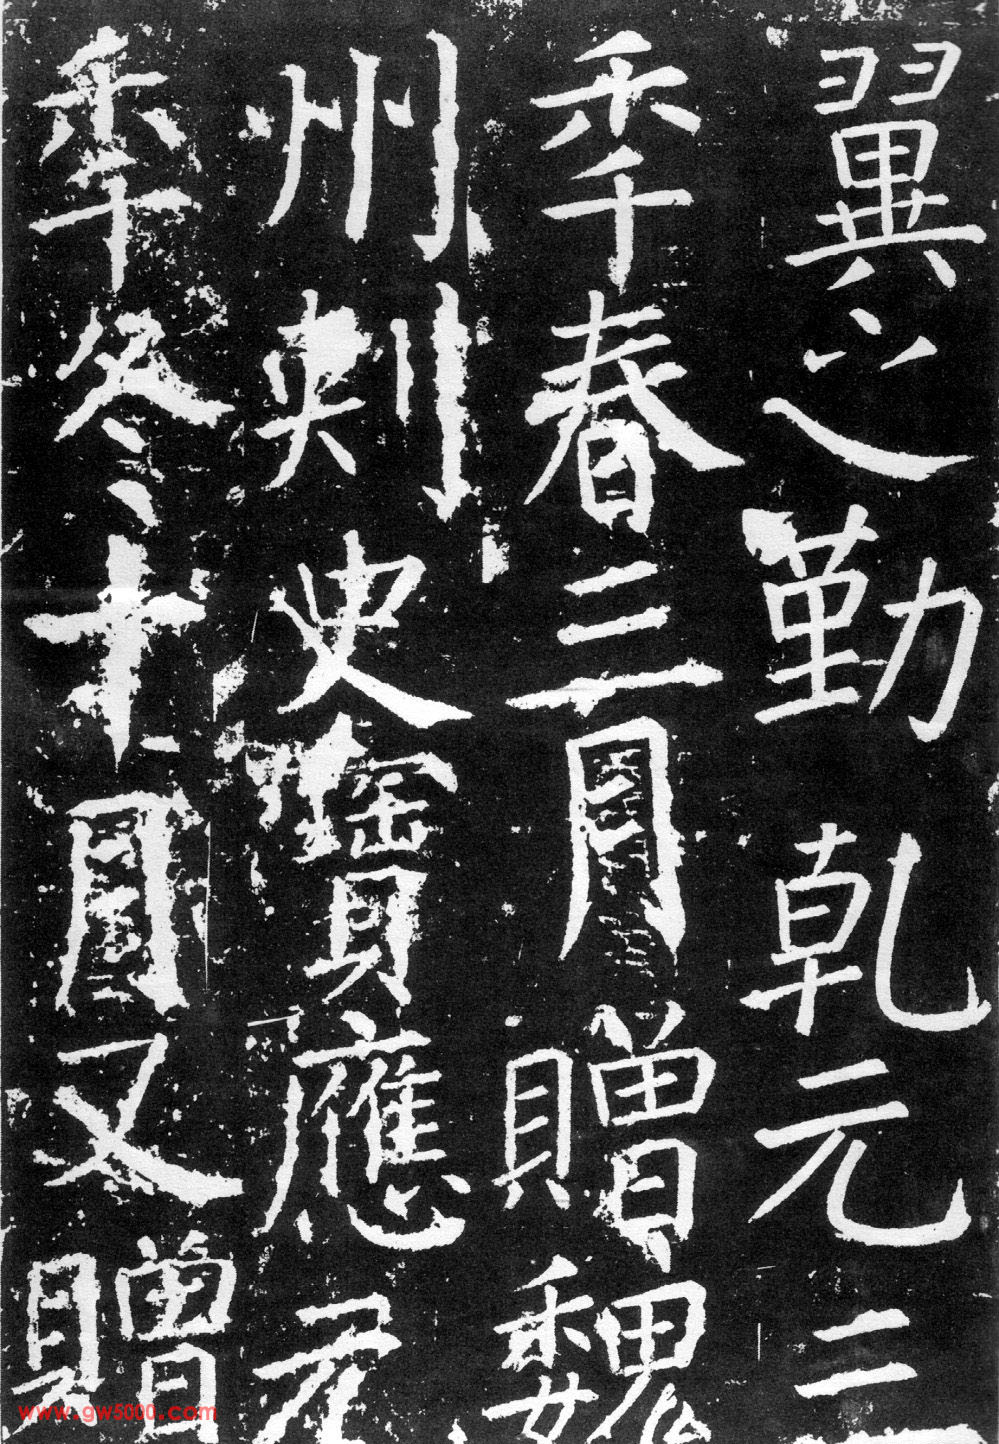 翼之勤乾元三
秊春三月贈魏
州刺史寶應元
秊冬十月又贈
www.gw5000.com